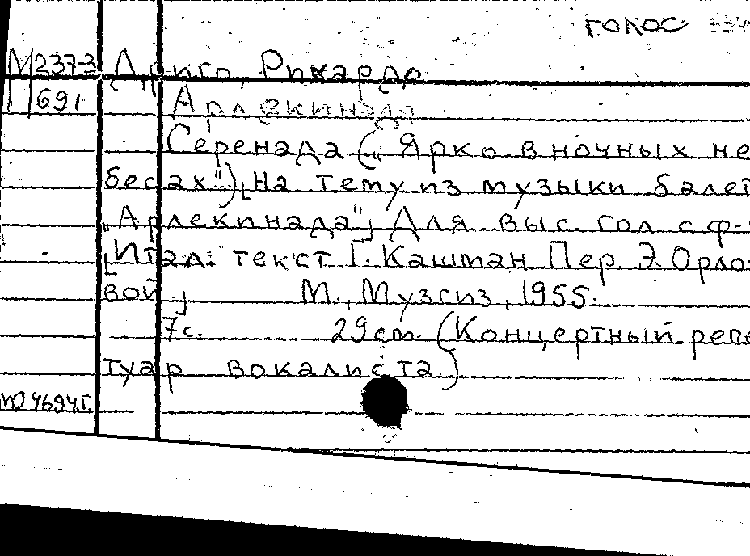 голос
М 237-3 Дриго, Рикардо
691 Арлекинада
Серенада („Ярко в ночных не-
бесах") [На тему из музыки балет
„Арлекинада"] Для выс. гол. с ф-
[Итал. текст Г. Каштан Пер. Э. Орло-
вой] М., Музгиз, 1955.
7с. 29см. (Концертный репе
туар вокалиста)